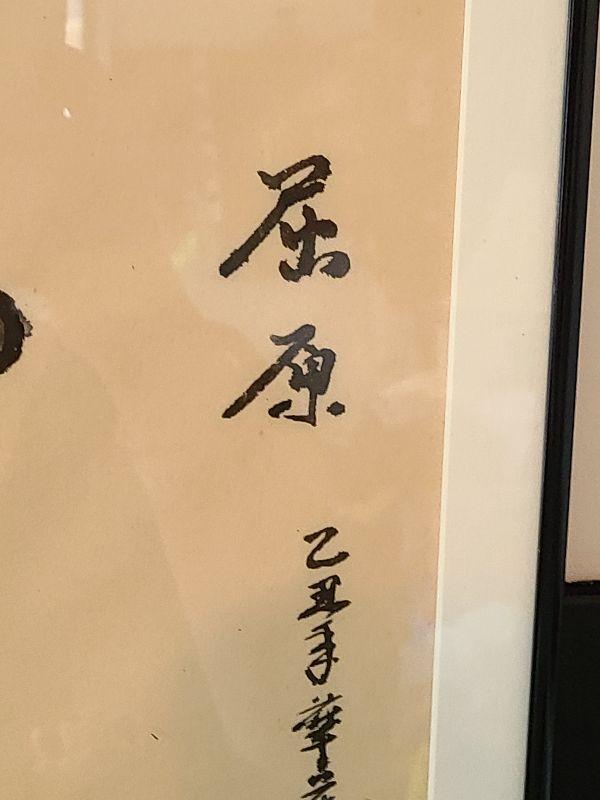 屈原
乙丑年華